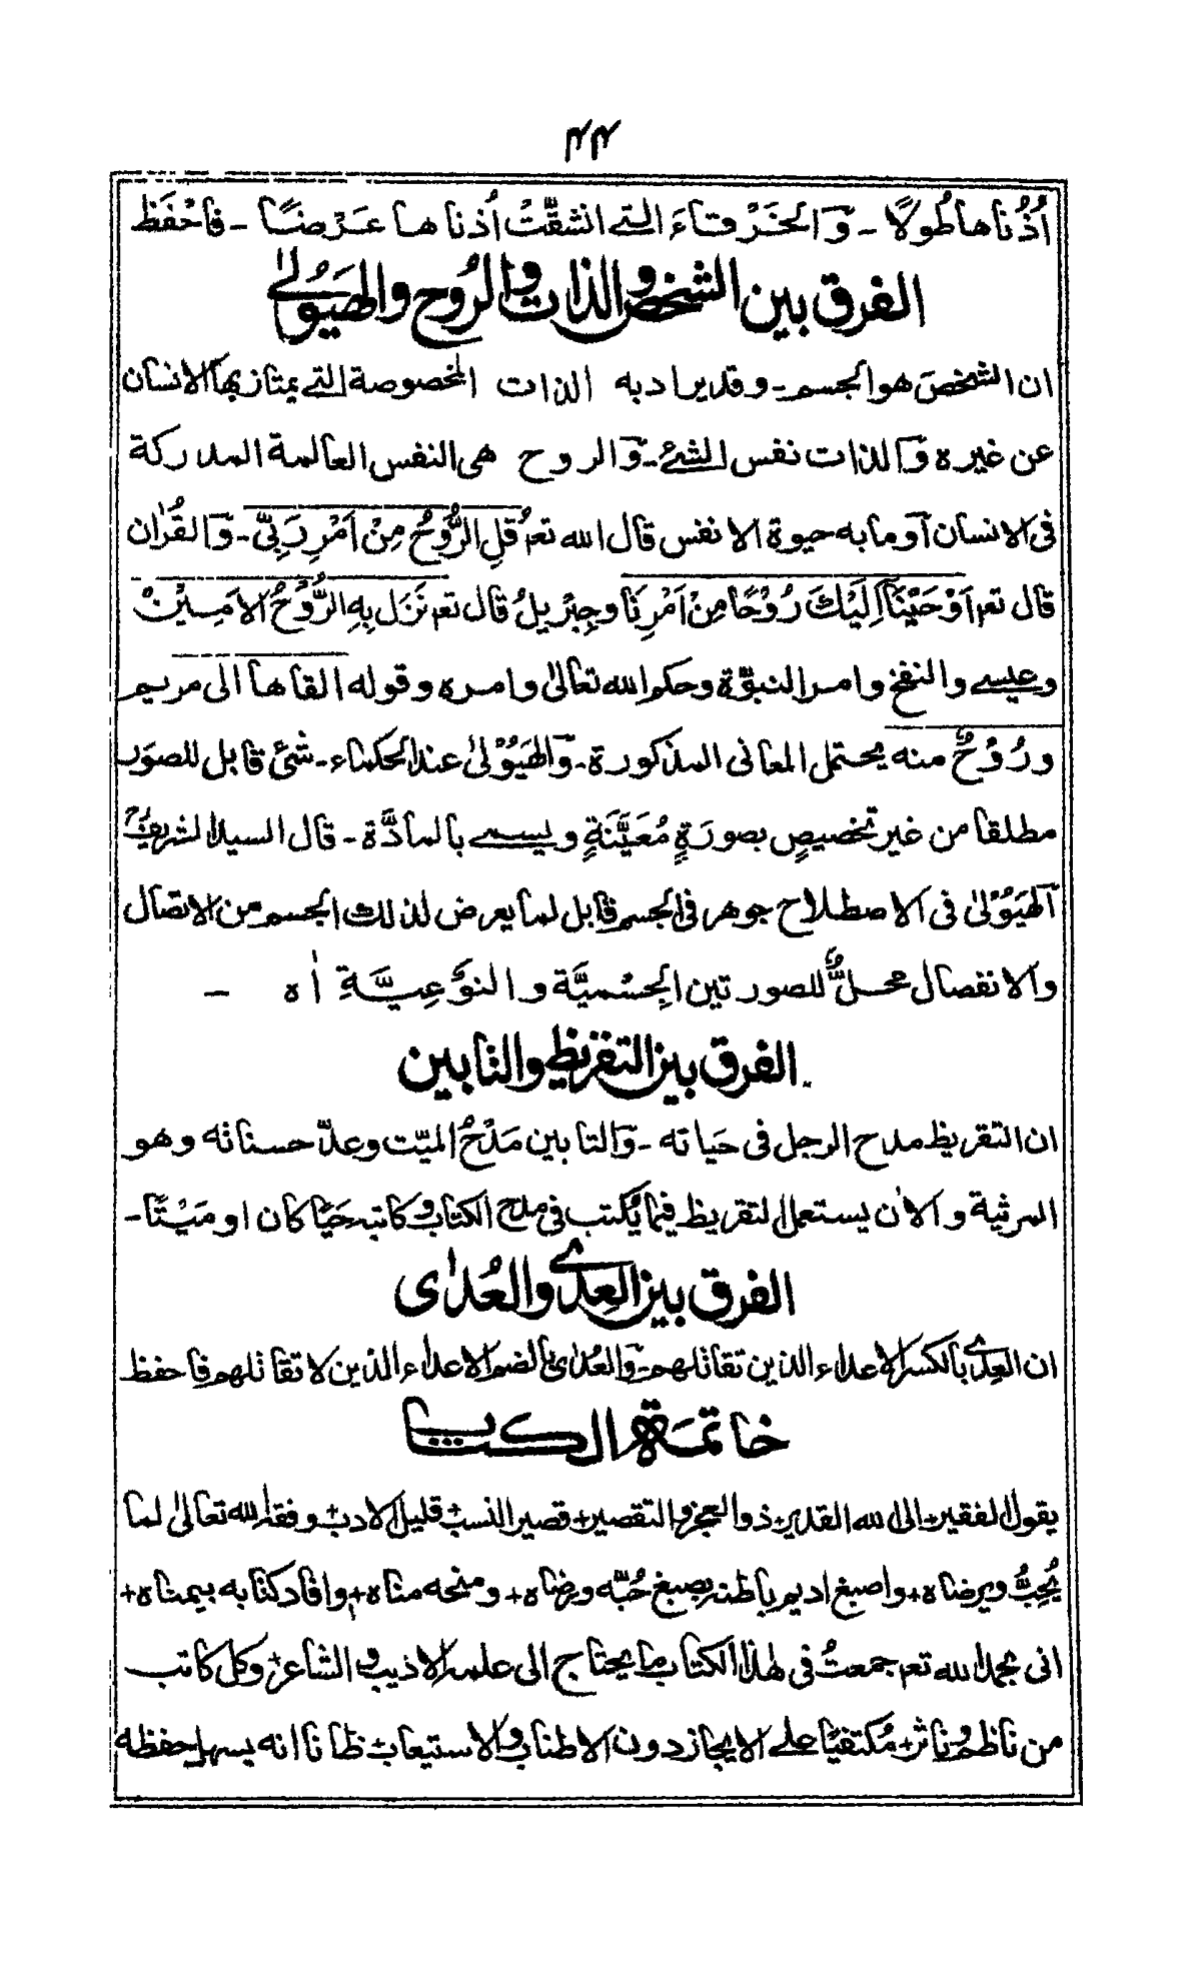 اُذُناها طُولًا - وَالخَرْقاءَ التي انشقَّتْ اُذناها عَرْضًا - فاحْفَظ
الفرق بين الشخص والذات والرُوح والهَيُولىٰ
ان الشخصَ هو الجسم - وقد يراد به الذات المخصوصة التي يمتاز بها الانسان
عن غيره وَالذات نفس الشئ - وَالروح هى النفس العالمة المدركة
فى الانسان اَو ما به حيوة الانفس قال الله تعـ قُلِ الرُّوحُ مِنْ اَمْرِ رَبِّى - وَالقُرٰان
قال تعـ اَوْحَيْنَآ اِلَيْكَ رُوْحًا مِنْ اَمْرِنَا وجِبْرِيلُ قال تعـ نَزَلَ بِهِ الرُّوْحُ الاَمِيْنُ
وعيسى والنفخ وامر النبوّة وحكم الله تعالىٰ وامره وقوله القاها الى مريم
ورُوْحٌ منه يحتمل المعانى المذكورة - وَالهَيُوْلىٰ عند الحكماء - شئ قابل للصوَر
مطلقا من غير تخصيصٍ بصورَةٍ مُعَيَّنَةٍ ويسمى بالمادَّة - قال السيد الشريفؒ
اَلهَيُوْلىٰ فى الاصطلاح جوهر فى الجسم قابل لما يعرض لذلك الجسم من الاتصال
والانفصال محلٌّ للصورتين الجِسْميَّة والنوْعِيَّةِ اٰه -
الفرق بين التقريظ والتابين
ان التقريظ مدح الرجل فى حَياته - وَالتابين مَدْحُ الميّت وعدّ حسناته وهو
المرثية والاٰن يستعمل التقريظ فيما يُكتب فى مدح الكتاب وكاتبه حَيًّا كان او مَيْتًا -
الفرق بين العِدٰى والعُدٰى
ان العِدٰى بالكسر الاعداء الذين تقاتلهم - وَالعُدٰى بالضم الاعداء الذين لا تقاتلهم فاحفظ
خاتمة الكتاب
يقول الفقير+ الى الله القدير+ ذو العجز والتقصير+ قصير النسب+ قليل الادب+ وفقه الله تعالىٰ لما
يُحِبُّ ويرضاه+ واصبغ اديم باطنه بصبغ حُبّه ورضاه+ ومنحه مناه+ وافاد كتابه بيمناه+
انى بحمد الله تعـ جمعتُ فى هٰذا الكتاب ما يحتاج الى علمه الاديب والشاعر+ وكل كاتب
من ناظم وناثر+ مُكتفيًا على الايجاز دون الاطناب والاستيعاب+ ظانا انه يسهل حفظه